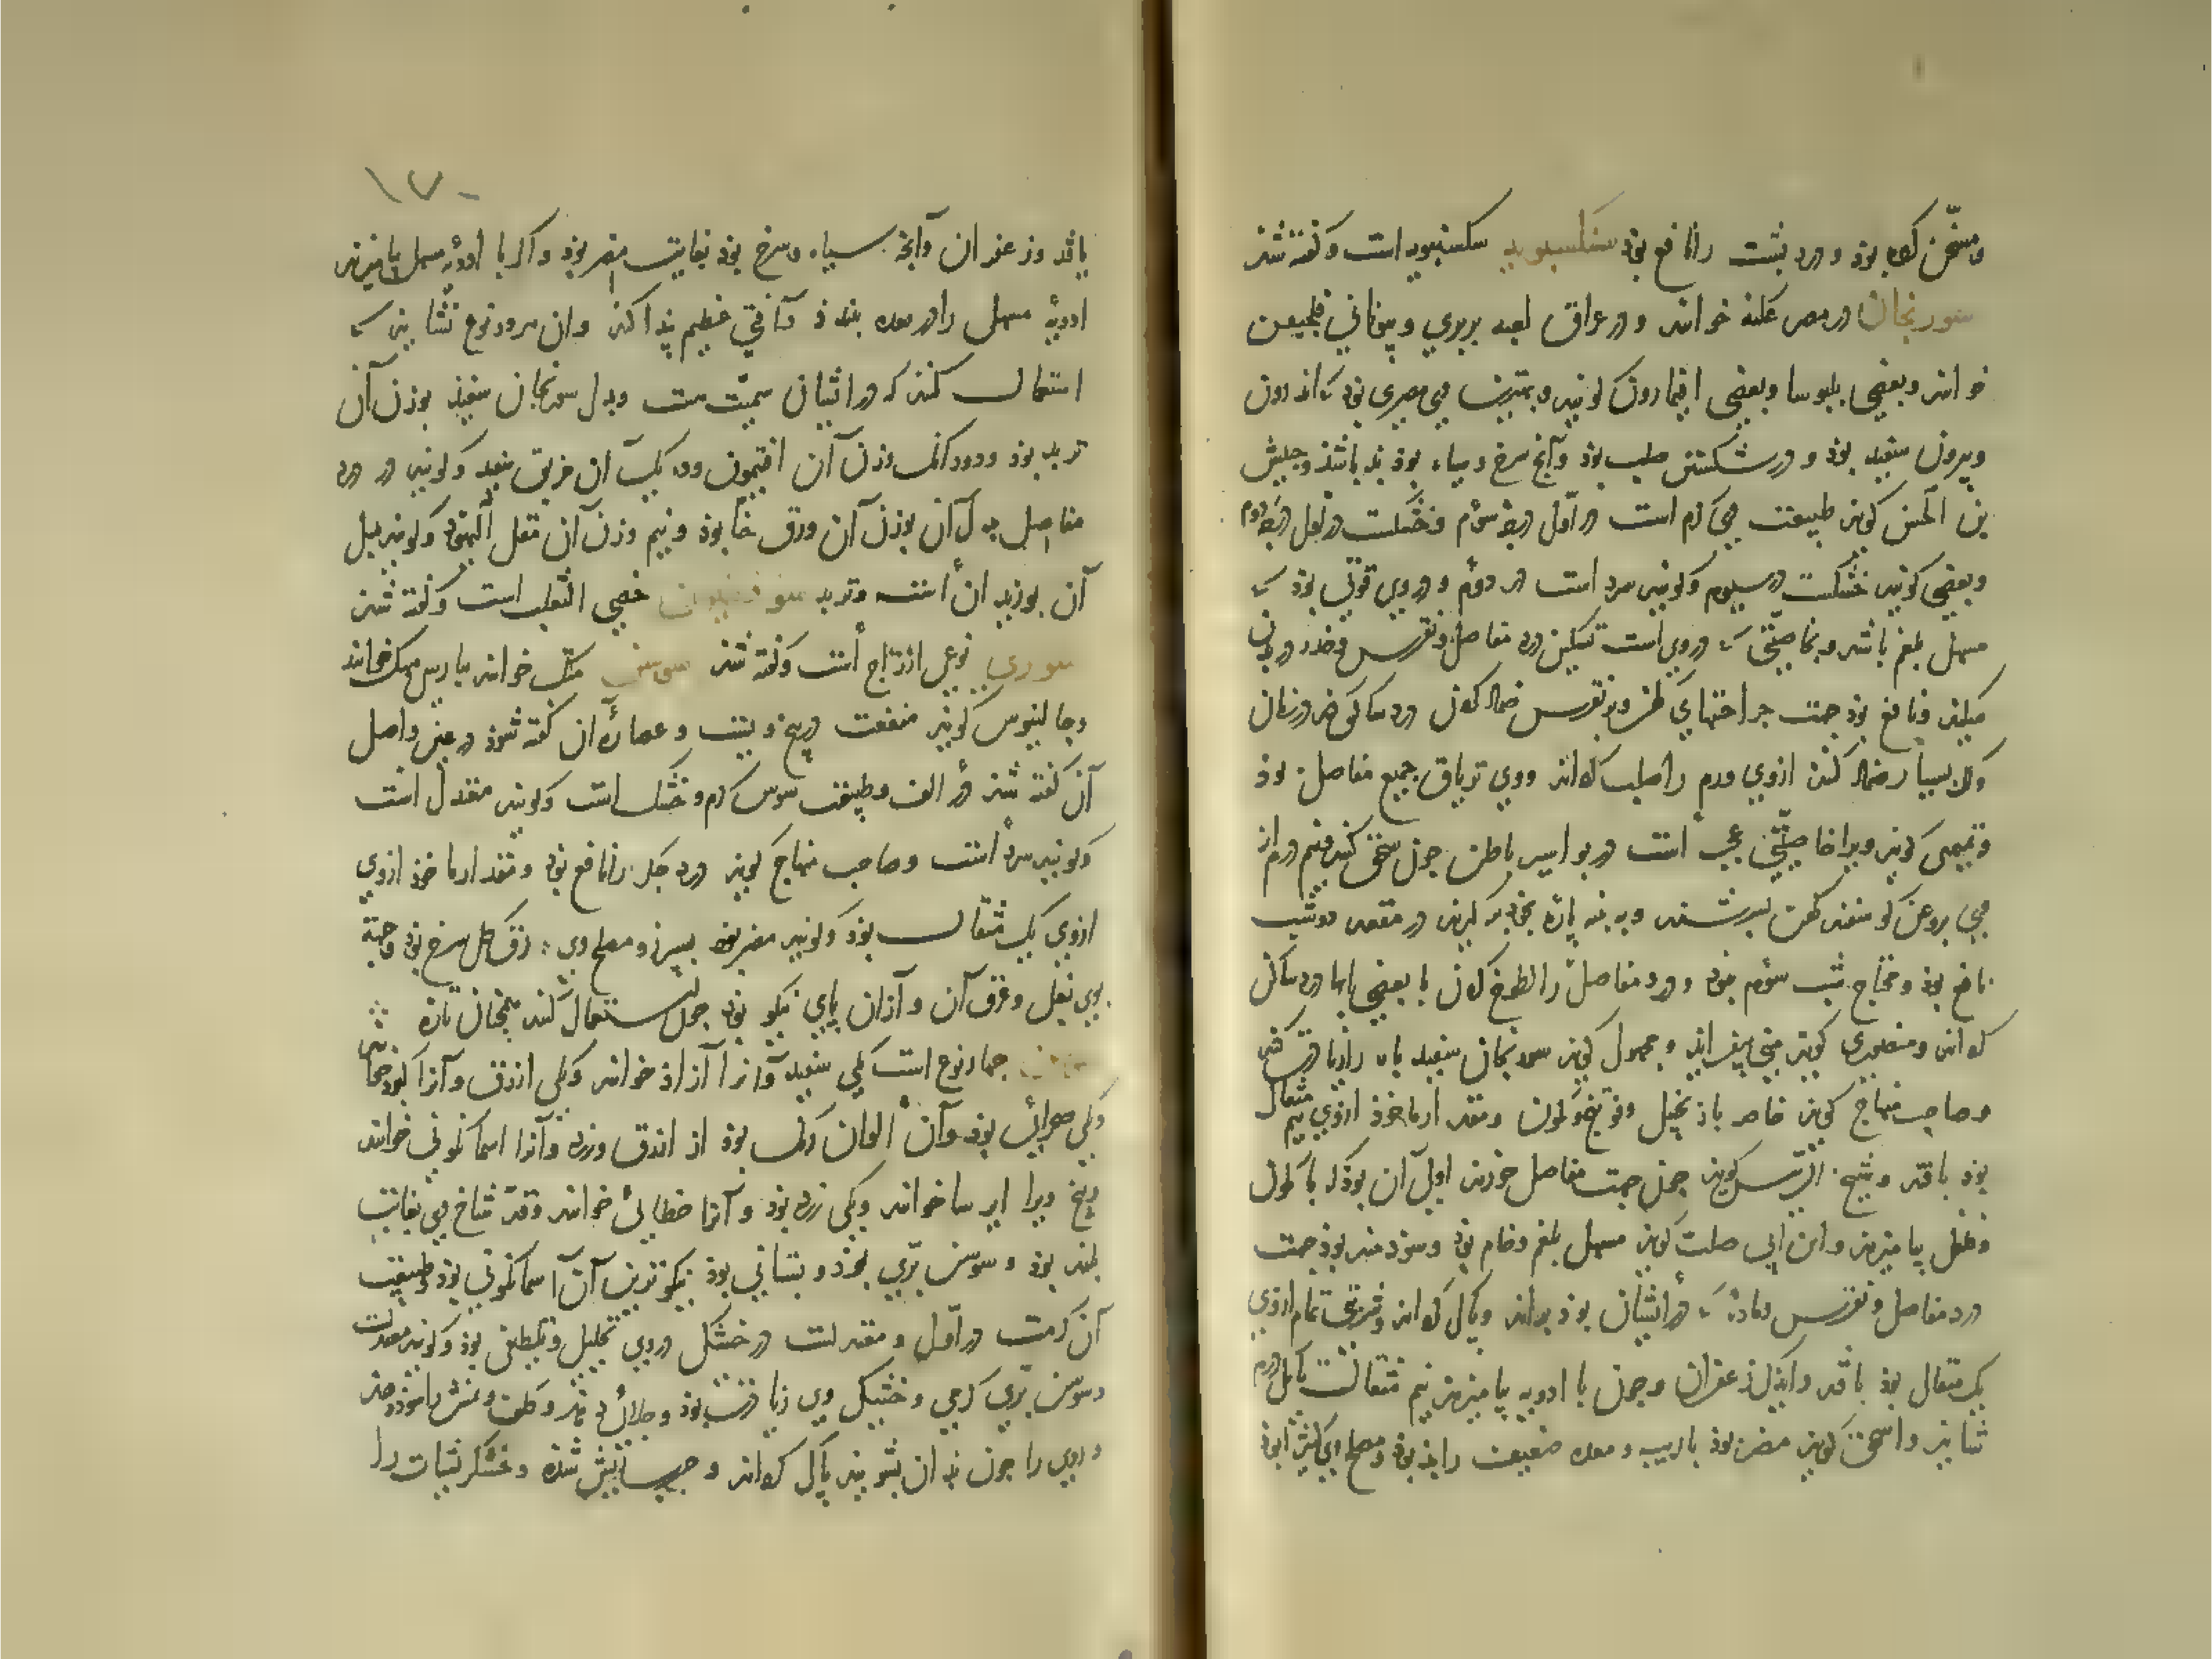 و مسخن گرده بوذ و درد پشت را نافع بوذ سنکسبویه سکسنبویه است و گفته شد
سورنجان در مصر عکنه خوانند و در عراق لعبه بربری و بیونانی قلجیعن
خوانند و بعضی بلبوسا و بعضی افیمارون گویند و بهترین وی مصری بوذ که اندرون
و بیرون سفید بوذ و در شکستن صلب بوذ و آنچ سرخ و سیاه بوذ بد باشد و حبیش
بن الحسن گوید طبیعت وی گرم است در اول درجه سوم و خشکست در اول درجه دوم
و بعضی گویند خشکست در سیوم و گویند سرد است در دوم و در وی قوتی بوذ که
مسهل بلغم باشد و بخاصیتی که در وی است تسکین درد مفاصل و نقرس و خدر در بدن
میکند و نافع بوذ جهت جراحتهای کهن و بر نقرس ضماد کردن درد ساکن کند در زمان
و اگر بسیار ضماد کنند از وی ورم را صلب گرداند و وی تریاق جمیع مفاصل بوذ
و تمیمی گوید ویرا خاصیتی عجب است در بواسیر باطن چون سحق کنند نیم درم از
وی بروغن گوسفند کهن بسرشند و به پنبه پاره بخوذ برگیرند در مقعد دو شب
نافع بوذ و محتاج شب سوم نبوذ و درد مفاصل را لطوخ کردن با بعضی آبها درد ساکن
گرداند و منصوری گوید منی بیفزاید و مجهول گوید سورنجان سفید باه را زیادت کند
و صاحب منهاج گوید خاصه با زنجبیل و فوتنج و کمون و مقدار ماخوذ از وی نیم مثقال
بوذ با قند و شیخ الرئیس گوید چون جهت مفاصل خورند اولی آن بوذ که با کمون
و فلفل بیامیزند و ابن ابی صلت گوید مسهل بلغم و خام بوذ و سوذمند بوذ جهت
درد مفاصل و نقرس و ماده که در ایشان بوذ براند و پاک گرداند و شربتی تمام از وی
یک مثقال بوذ با قند و اندک زعفران و چون با ادویه بیامیزند نیم مثقالست تا یک درم
شاید و اسحق گوید مضر بوذ و معده ضعیف را بد بوذ و مصلح وی کثیرا بوذ
۱۷۰
یا قند و زعفران و آنچه سیاه و سرخ بوذ بغایت مضر بوذ و اگر با ادویه مسهل بیامیزند
ادویه مسهل را در معده بندد و آفتی عظیم پیدا کند و ان هر دو نوع نشاید که
استعمال کنند که در ایشان سمیت هست و بدل سورنجان سفید بوزن آن
تربد بوذ و دو دانک وزن آن افتیمون و ده یک آن خربق سفید و گویند در درد
مفاصل بدل آن بوزن آن ورق حنا بوذ و نیم وزن آن مقل الیهود و گویند بدل
آن بوزیدان است و تربد خصی الثعلب است و گفته شد
سوری نوعی از زاج است و گفته شد سوس متک خوانند بپارسی مهک خوانند
و جالینوس گوید منفعت در بیخ ویست و عصاره آن گفته شوذ در عین و اصل
آن گفته شد در الف و طبیعت سوس گرم و خشک است و گویند معتدل است
و گویند سرد است و صاحب منهاج گوید درد جگر را نافع بوذ و مقدار ماخوذ از وی
از وی یک مثقال بوذ و گویند مضر بوذ بسپرز و مصلح وی ورق گل سرخ بوذ و جهة
بوی بغل و عرق آن و از آن پای نیکو بوذ چون استعمال کنند همچنان تازه
سوسن چهار نوع است یکی سفید و آنرا آزاذ خوانند و یکی ازرق و آنرا کبود خوانند
و یکی صحرائی بوذ و آن الوان رنک بوذ از ازرق و زرد و آنرا اسمانکونی خوانند
و بیخ ویرا ایرسا خوانند و یکی زرد بوذ و آنرا خطائی خوانند و قد شاخ وی بغایت
بلند بوذ و سوسن بری بوذ و بستانی بوذ نیکوترین آن اسمانکونی بوذ و طبیعت
آن گرمست در اول و معتدلست در خشکی در وی تحلیل و تلطیفی بوذ و گویند معتدلست
و سوسن بری گرمی و خشکی وی زیادت بوذ
و روی را چون بدان بشویند پاک گرداند